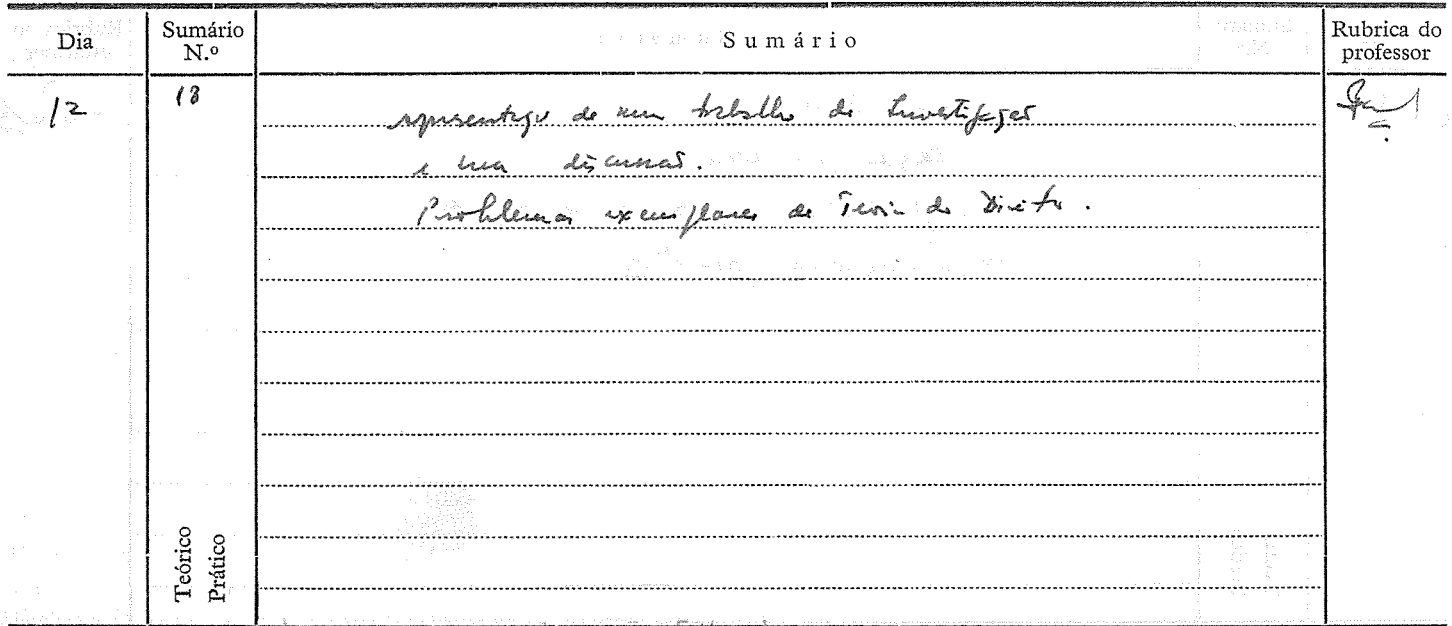 Dia
Sumário N.º
Sumário
Rubrica do professor
12
18
apresentação de um trabalho de Investigação
e sua discussão.
Problemas exemplares de Teoria do Direito.
Teórico
Prático